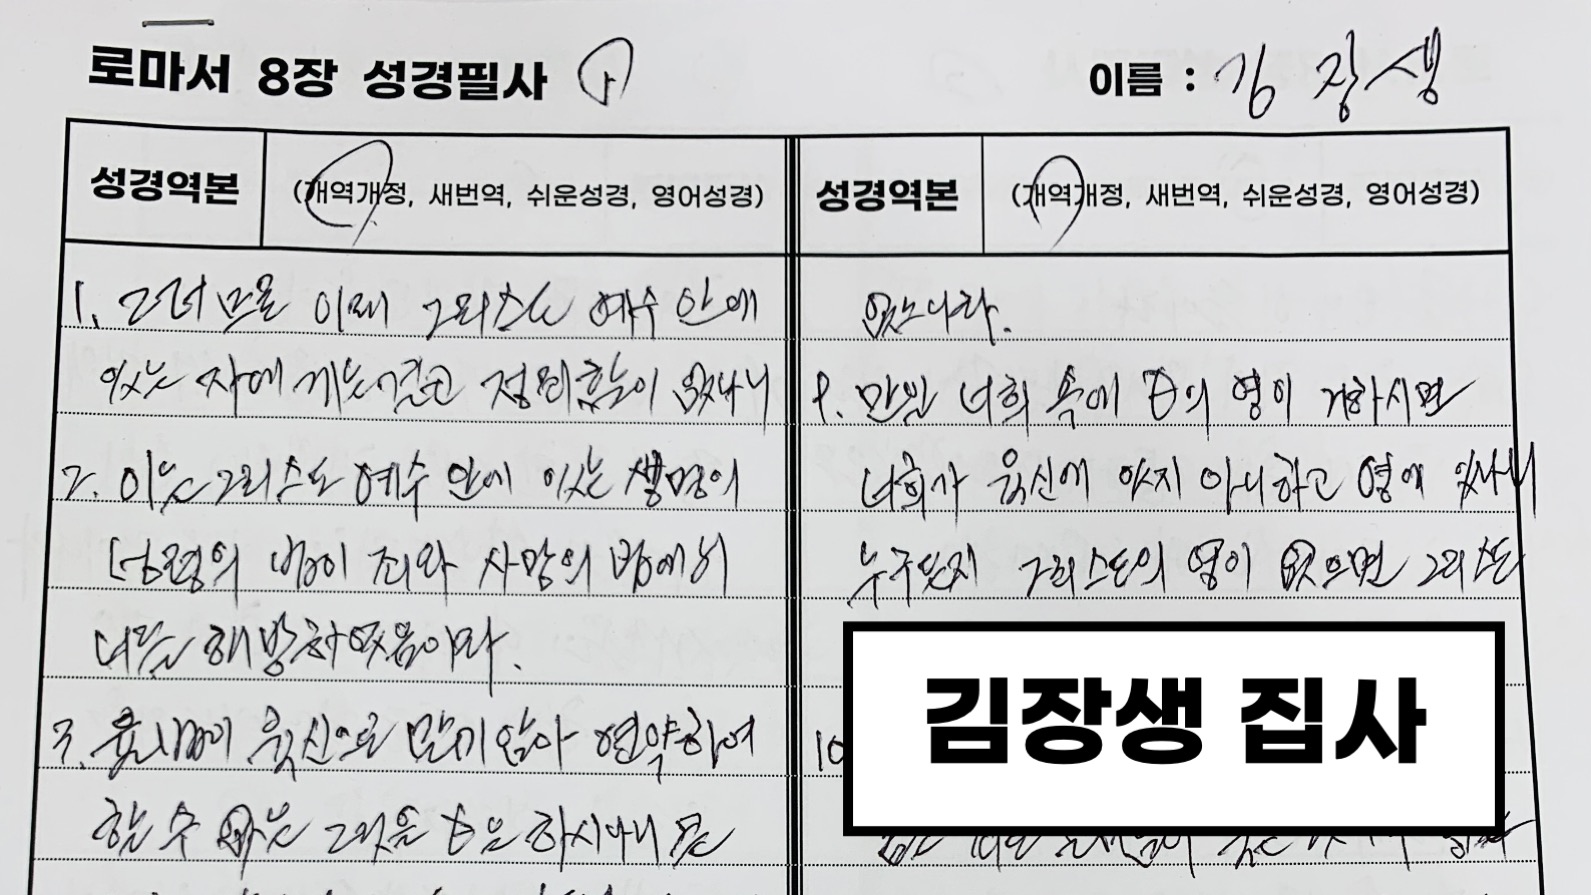 로마서 8장 성경필사 ①
이름 : 김장생
성경역본 (개역개정, 새번역, 쉬운성경, 영어성경)
1. 그러므로 이제 그리스도 예수 안에
있는 자에게는 결코 정죄함이 없나니
2. 이는 그리스도 예수 안에 있는 생명의
성령의 법이 죄와 사망의 법에서
너를 해방하였음이라.
3. 율법이 육신으로 말미암아 연약하여
할 수 없는 그것을 하시나니 곧
성경역본 (개역개정, 새번역, 쉬운성경, 영어성경)
없느니라.
9. 만일 너희 속에 의 영이 거하시면
너희가 육신에 있지 아니하고 영에 있나니
누구든지 그리스도의 영이 없으면 그리스도
10
김장생 집사